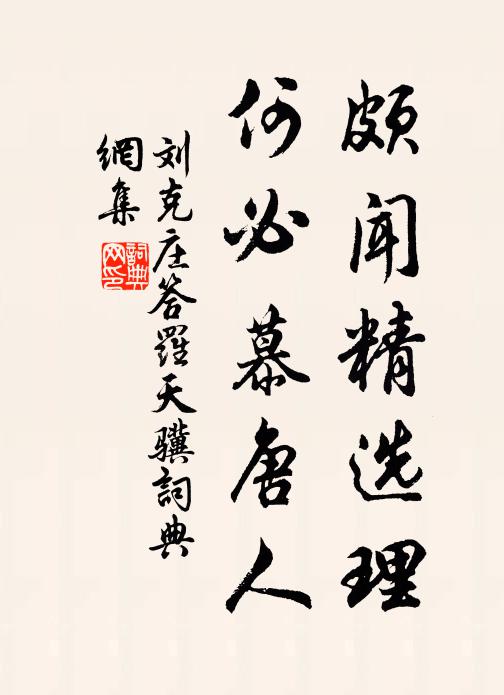 颇闻精选理
何必慕唐人
刘克庄答羅天骥詞典
網集
詞典
网印